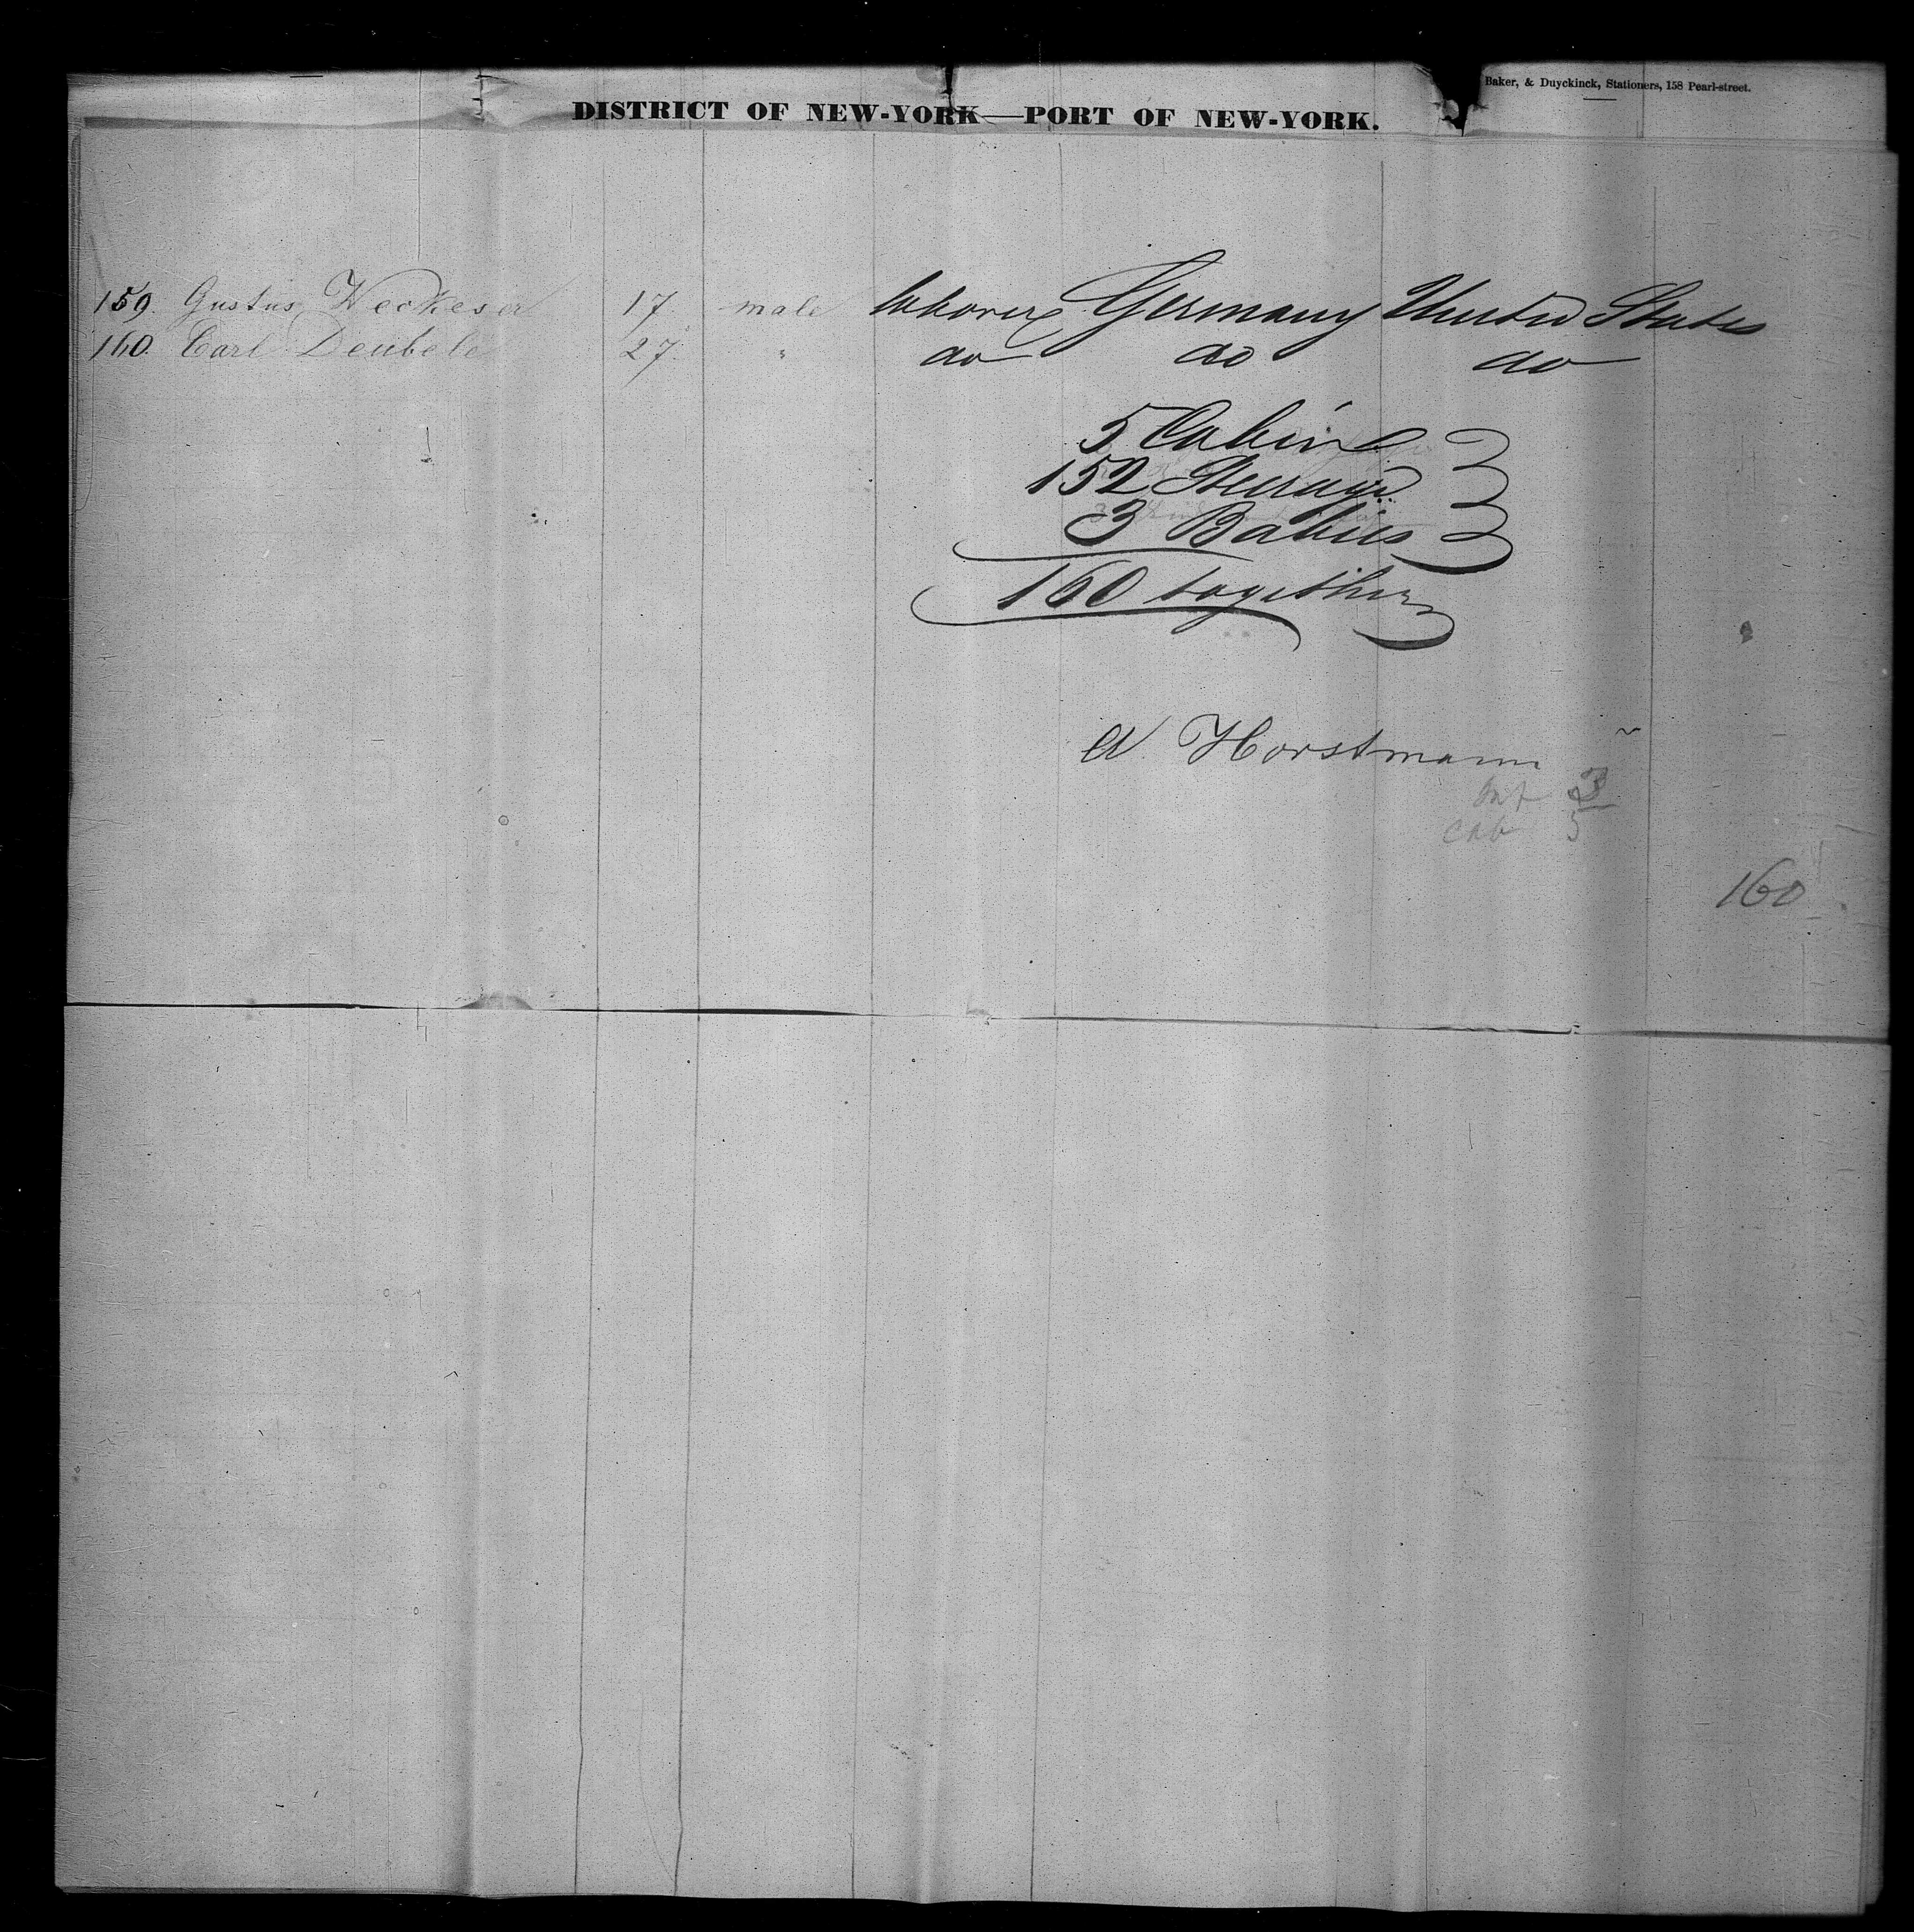 Baker, & Duyckinck, Stationers, 158 Pearl-street.
DISTRICT OF NEW-YORK—PORT OF NEW-YORK.
159. Gustus Weckeser 17. male laborer Germany United States
160. Carl Deubele 27. " do do do
5 Cabin
152 Steerage
3 Babies
160 together
A Horstmann
Inf 3
Cab 5
160